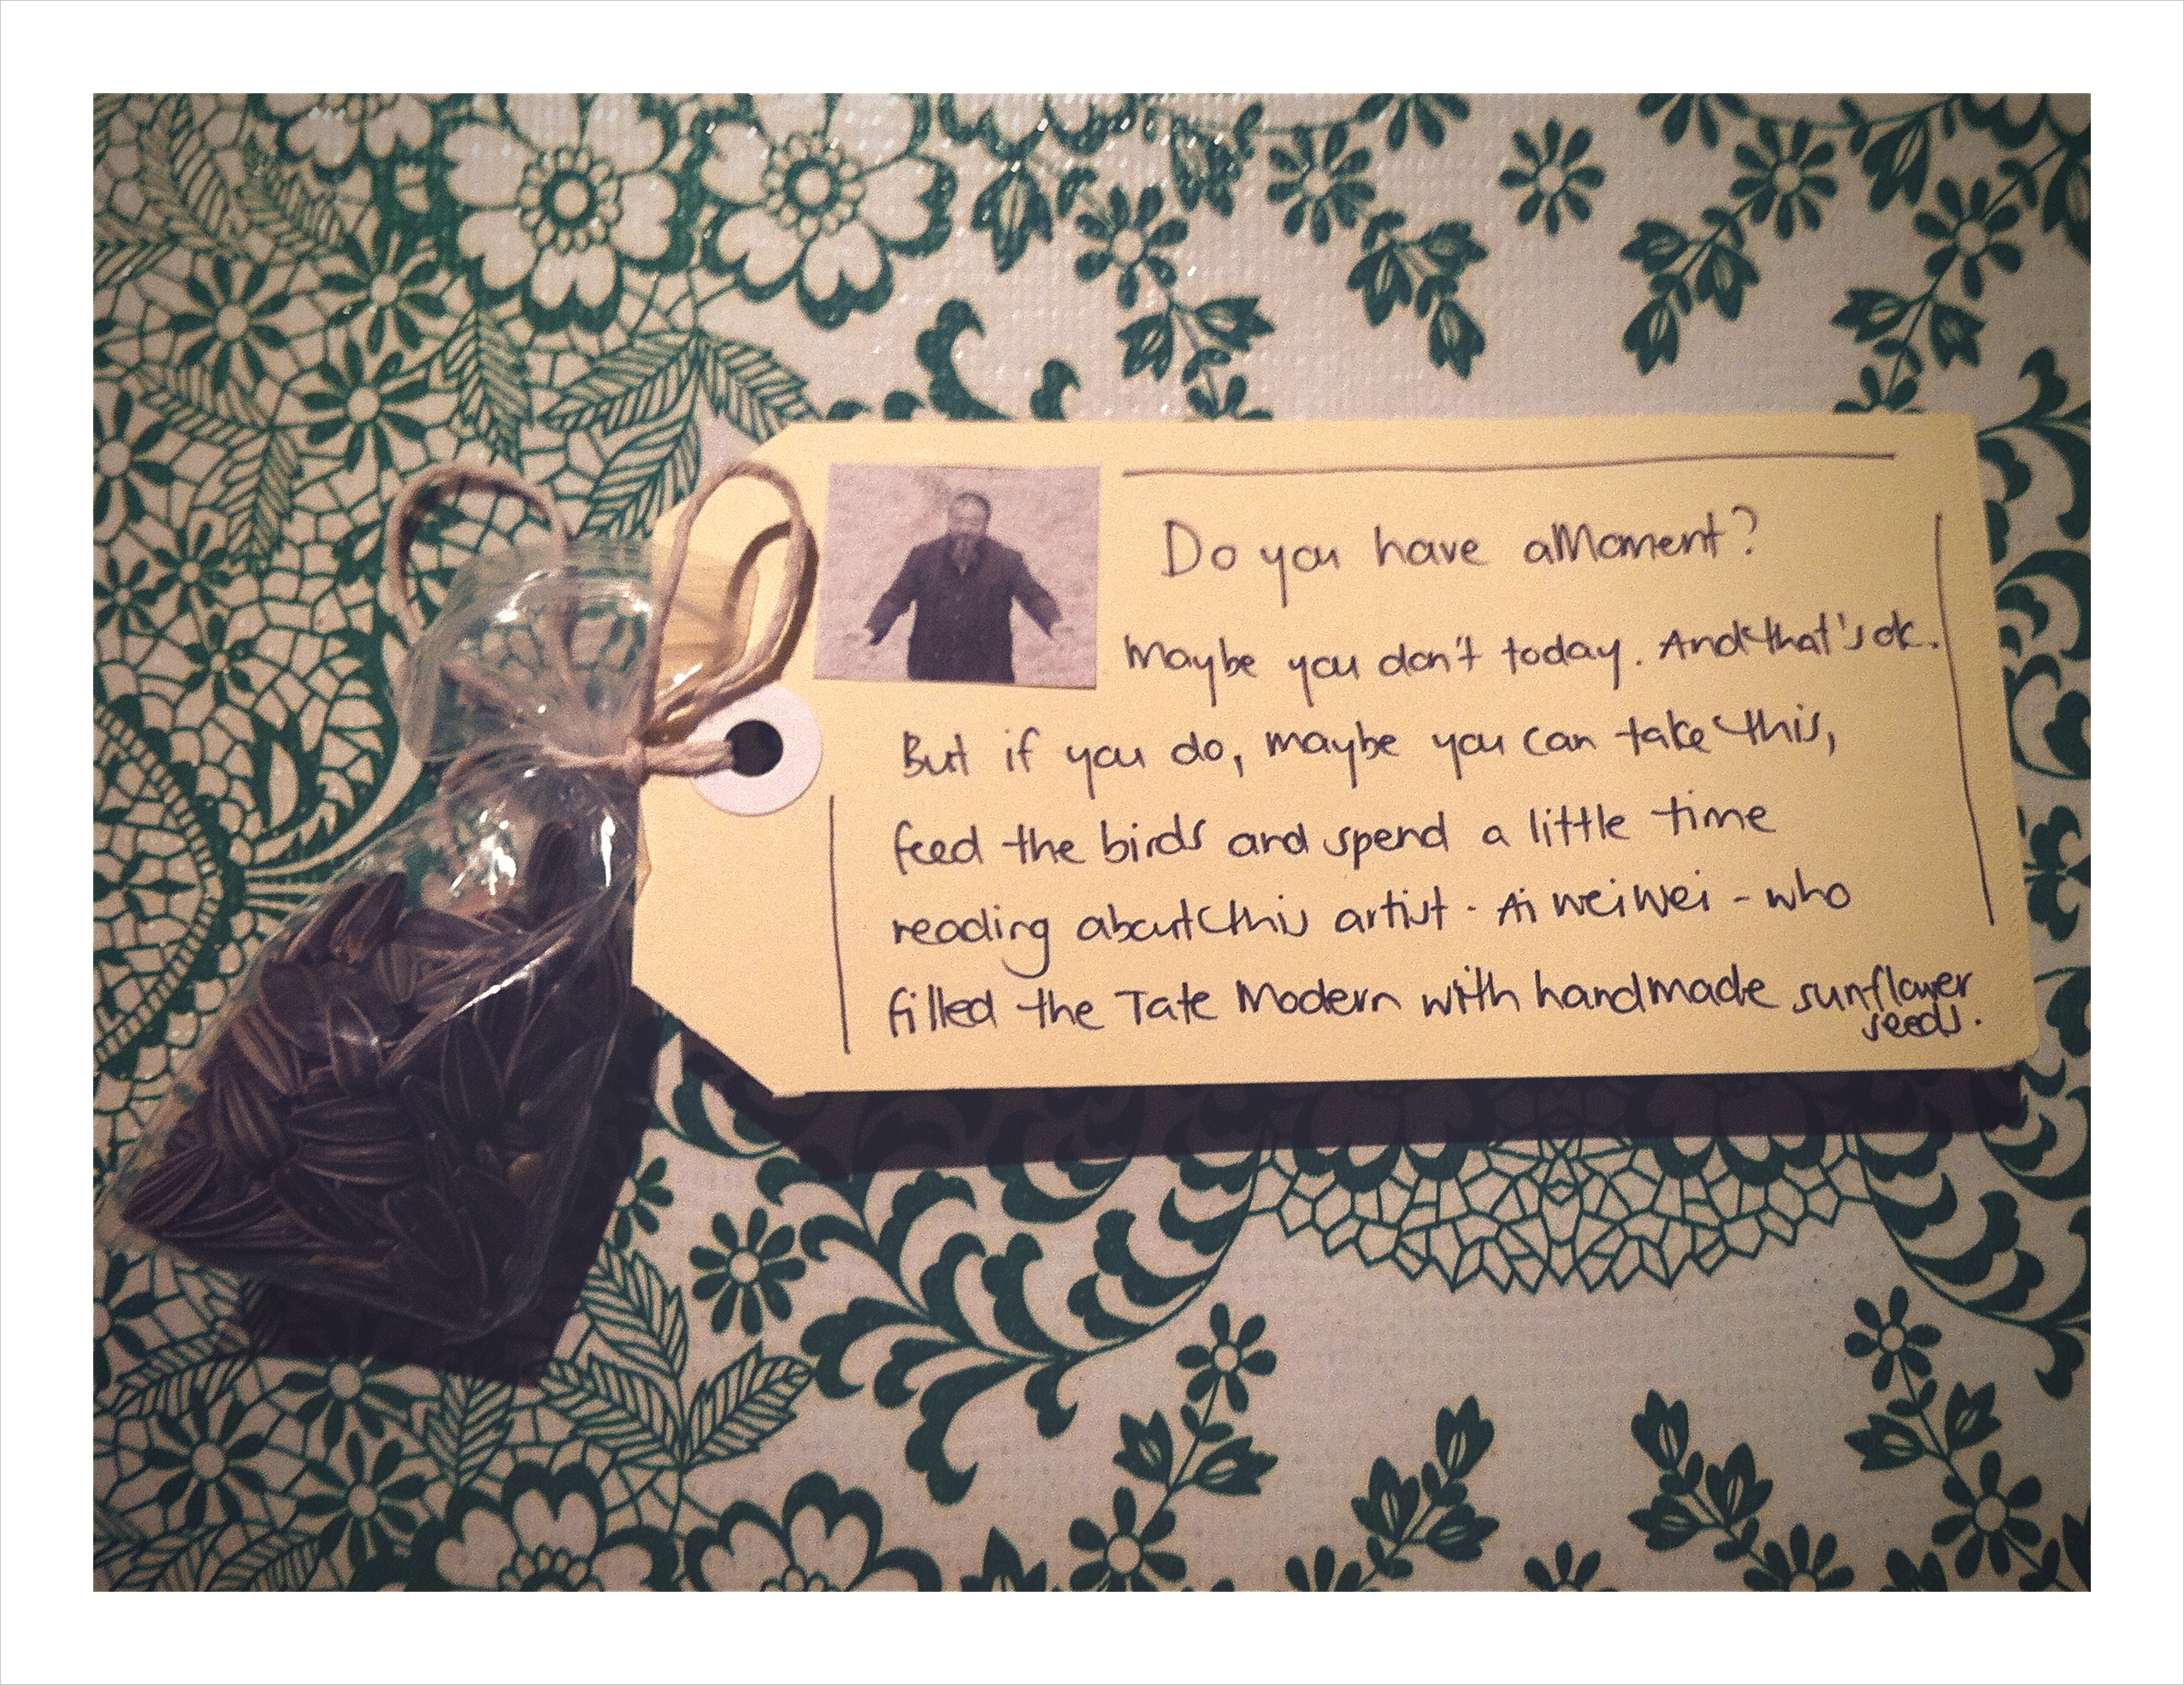 Do you have aMoment?
Maybe you don't today. And that's ok.
But if you do, maybe you can take this,
feed the birds and spend a little time
reading about this artist - Ai weiwei - who
filled the Tate Modern with handmade sunflower
seeds.